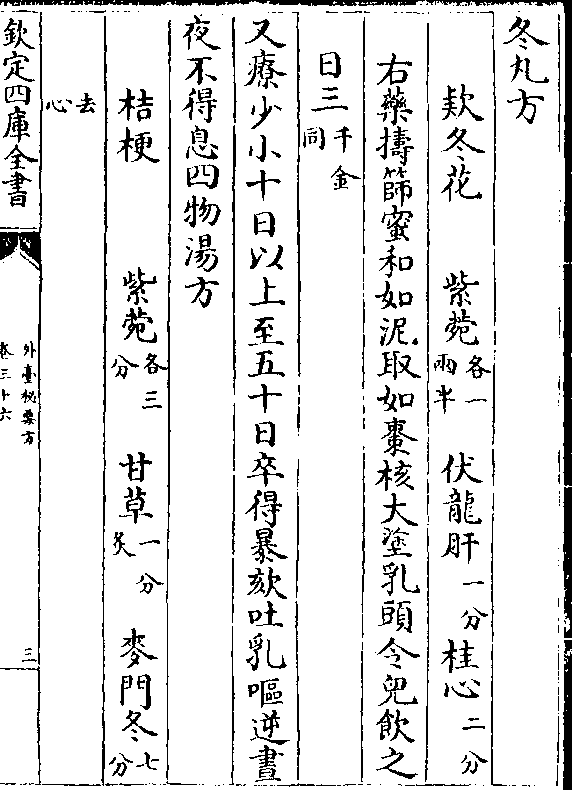 冬丸方
款冬花　紫菀各一兩半　伏龍肝一分　桂心二分
右藥擣篩蜜和如泥取如棗核大塗乳頭令兒飲之
日三千金同
又療少小十日以上至五十日卒得暴欬吐乳嘔逆晝
夜不得息四物湯方
桔梗　紫菀各三分　甘草一分炙　麥門冬七分
去心
欽定四庫全書
外臺秘要方
卷三十六
三